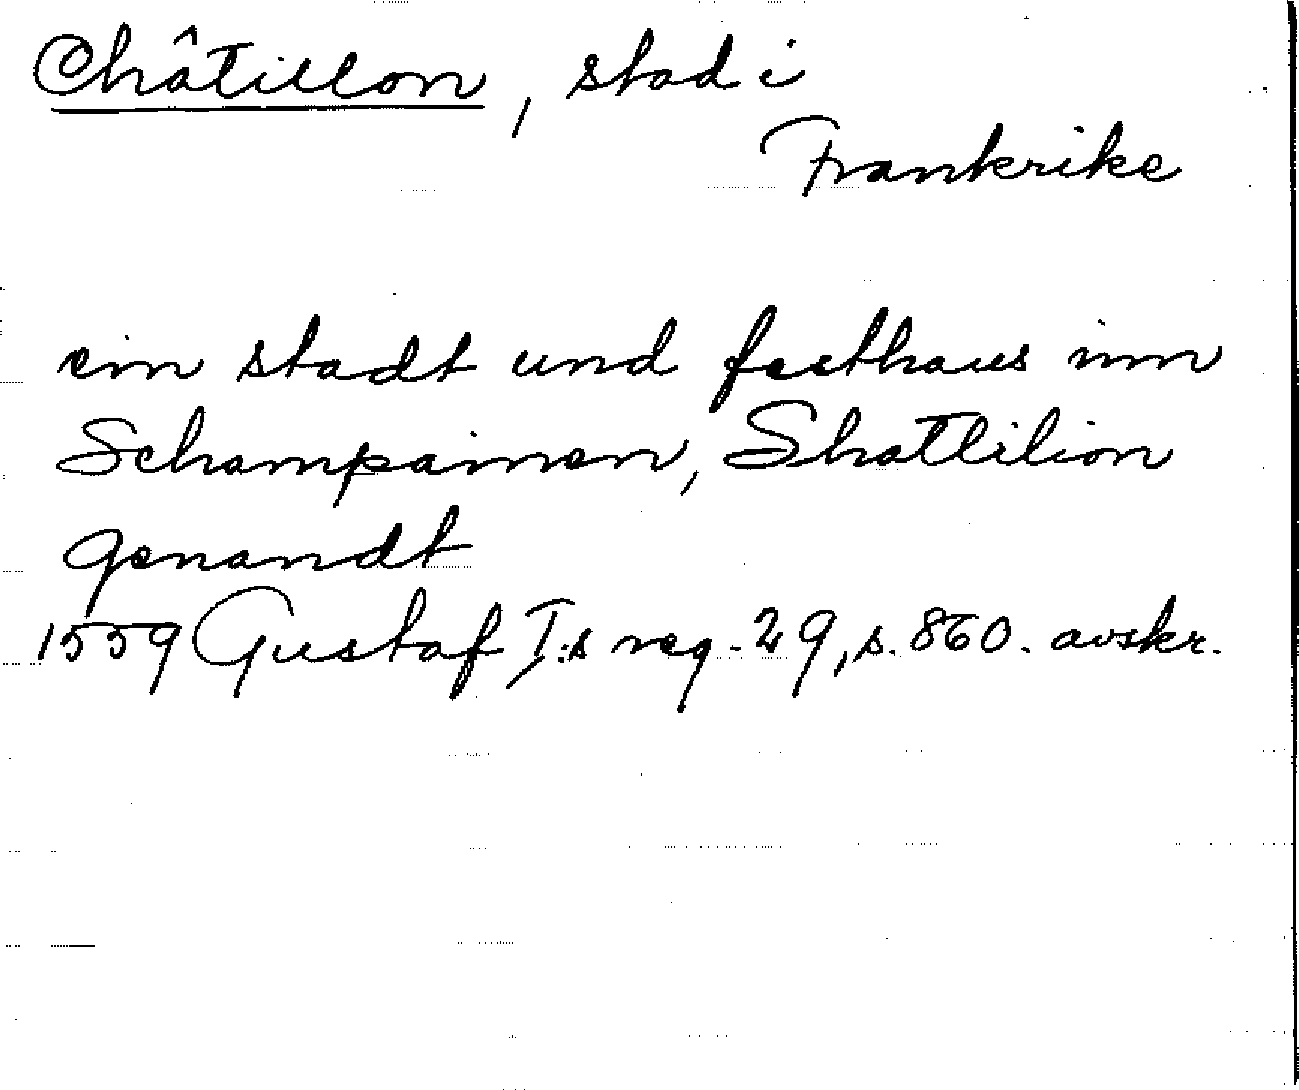 Châtillon, stad i
Frankrike
ein stadt und festhaus inn
Schampainen, Shatlilion
genandt
1559 Gustaf I:s reg. 29, s. 860. avskr.